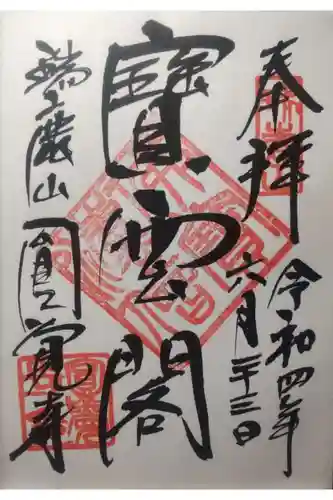 奉拝
令和四年
六月二十三日
寶雲閣
瑞鹿山
圓覚寺